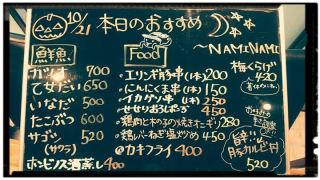 10/21
本日のおすすめ
～NAMINAMI
鮮魚
カツオ 700
乙女だい 650
いなだ 500
たこぶつ 600
サゴシ 520
(サワラ)
ホンビノス酒蒸し 400
Food
・エリンギ肉巻串(1本) 200
・にんにく串(1本) 150
・イカゲソ串 250
・せせりおろしぽん
・鶏肉と木の子の焼き 280
・鶏レバーねぎ塩炒め 450
@カキフライ 400
梅くらげ
420
旨辛
豚カルビ丼
520